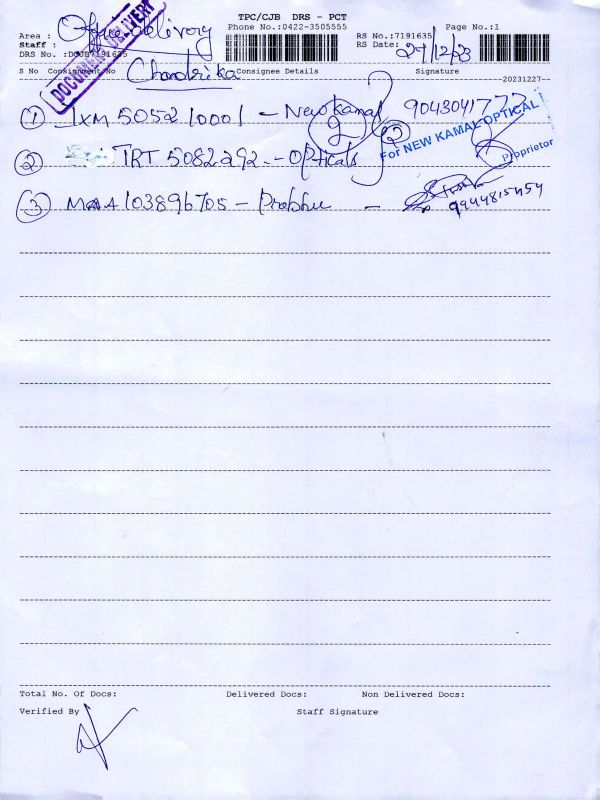 TPC/CJB DRS - PCT
Phone No.:0422-3505555
Page No.:1
Area : Office Delivery
RS No.:7191635
Staff :
RS Date: 27/12/23
DRS No. :DCJB7191635
DOCUMENT DELIVERY
Chandrika
S No Consignment No Consignee Details Signature
20231227
① IXM 505210001 - New Kamal 9043041777
② TRT 5082292 - Opticals
For NEW KAMAL OPTICAL
Proprietor
③ MAA103896705 - Prabhu -
9944815454
Total No. Of Docs: Delivered Docs: Non Delivered Docs:
Verified By Staff Signature